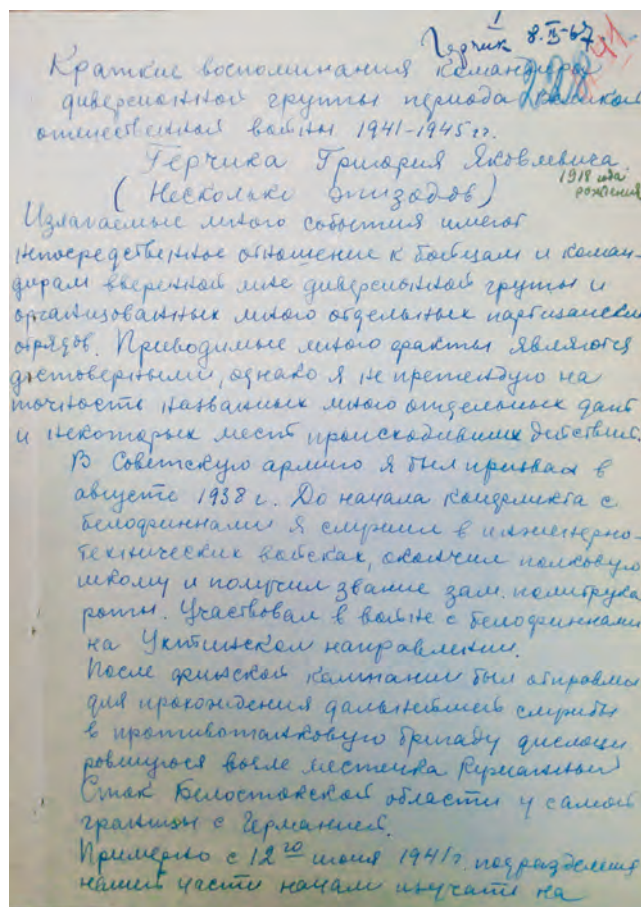 1
Герчик 8.IX-67
41.
Краткие воспоминания командира
диверсионной группы периода Великой
отечественной войны 1941-1945 гг.
Герчика Григория Яковлевича
1918 года
рождения
(Несколько эпизодов)
Излагаемые мною события имеют
непосредственное отношение к бойцам и коман-
дирам вверенной мне диверсионной группы и
организованных мною отдельных партизанских
отрядов. Приводимые мною факты являются
достоверными, однако я не претендую на
точность названных мною отдельных дат
и некоторых мест происходивших действий.
В Советскую армию я был призван в
августе 1938 г. До начала конфликта с
белофиннами я служил в инженерно-
технических войсках, окончил полковую
школу и получил звание зам. политрука
роты. Участвовал в войне с белофиннами
на Ухтинском направлении.
После финской кампании был отправлен
для прохождения дальнейшей службы
в противотанковую бригаду дислоци
ровшуюся возле местечка
Сток Белостокской области у самой
границы с Германией.
Примерно с 12го июня 1941 г. подразделения
нашей части начали изучать на